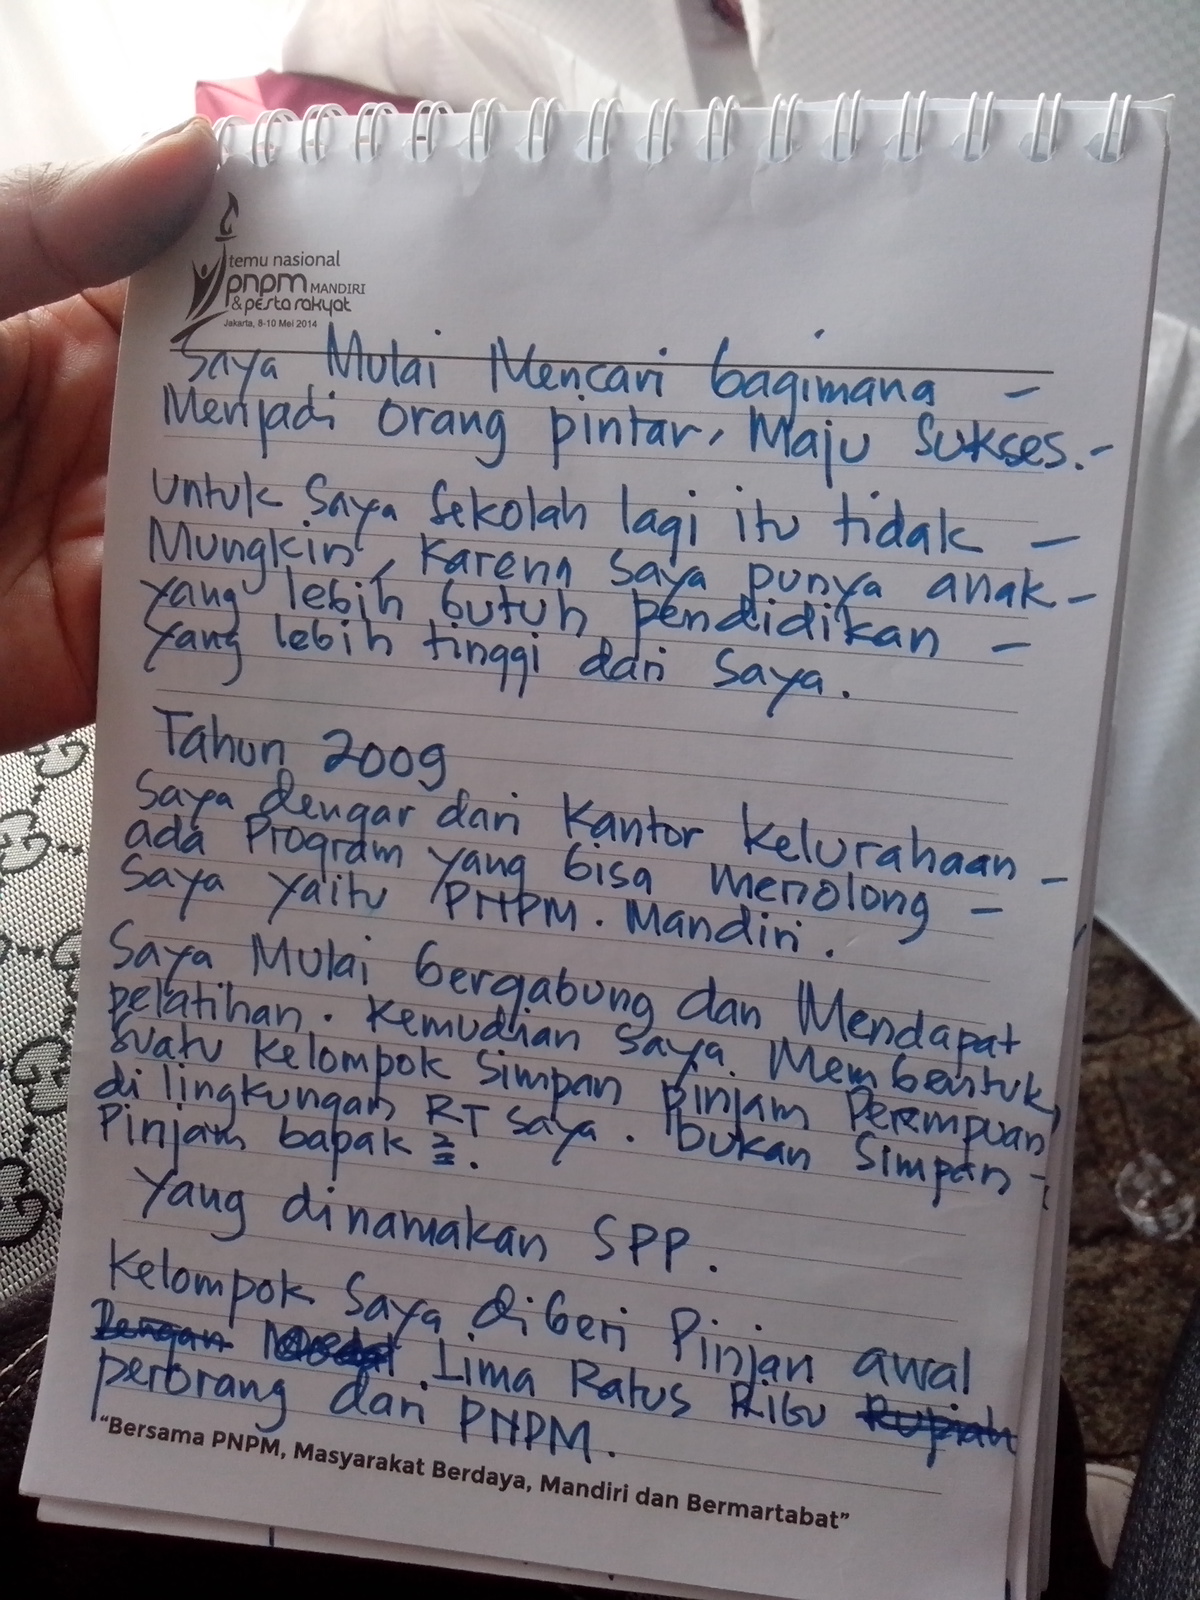 temu nasional
pnpm MANDIRI
& pesta rakyat
Jakarta, 8-10 Mei 2014
Saya Mulai Mencari bagimana -
Menjadi orang pintar, Maju Sukses. -
Untuk Saya Sekolah lagi itu tidak -
Mungkin, Karena Saya punya anak -
yang lebih butuh pendidikan -
yang lebih tinggi dari Saya.
Tahun 2009
Saya dengar dari Kantor Kelurahaan -
ada Program yang bisa menolong -
Saya yaitu PNPM. Mandiri.
Saya Mulai bergabung dan Mendapat
pelatihan. Kemudian Saya Membentuk
Suatu Kelompok Simpan Pinjam Perempuan
di lingkungan RT Saya. bukan Simpan -
Pinjam bapak 2.
Yang dinamakan SPP.
Kelompok Saya diberi Pinjan awal
Dengan Lima Ratus Ribu Rupiah
perorang dari PNPM.
"Bersama PNPM, Masyarakat Berdaya, Mandiri dan Bermartabat"